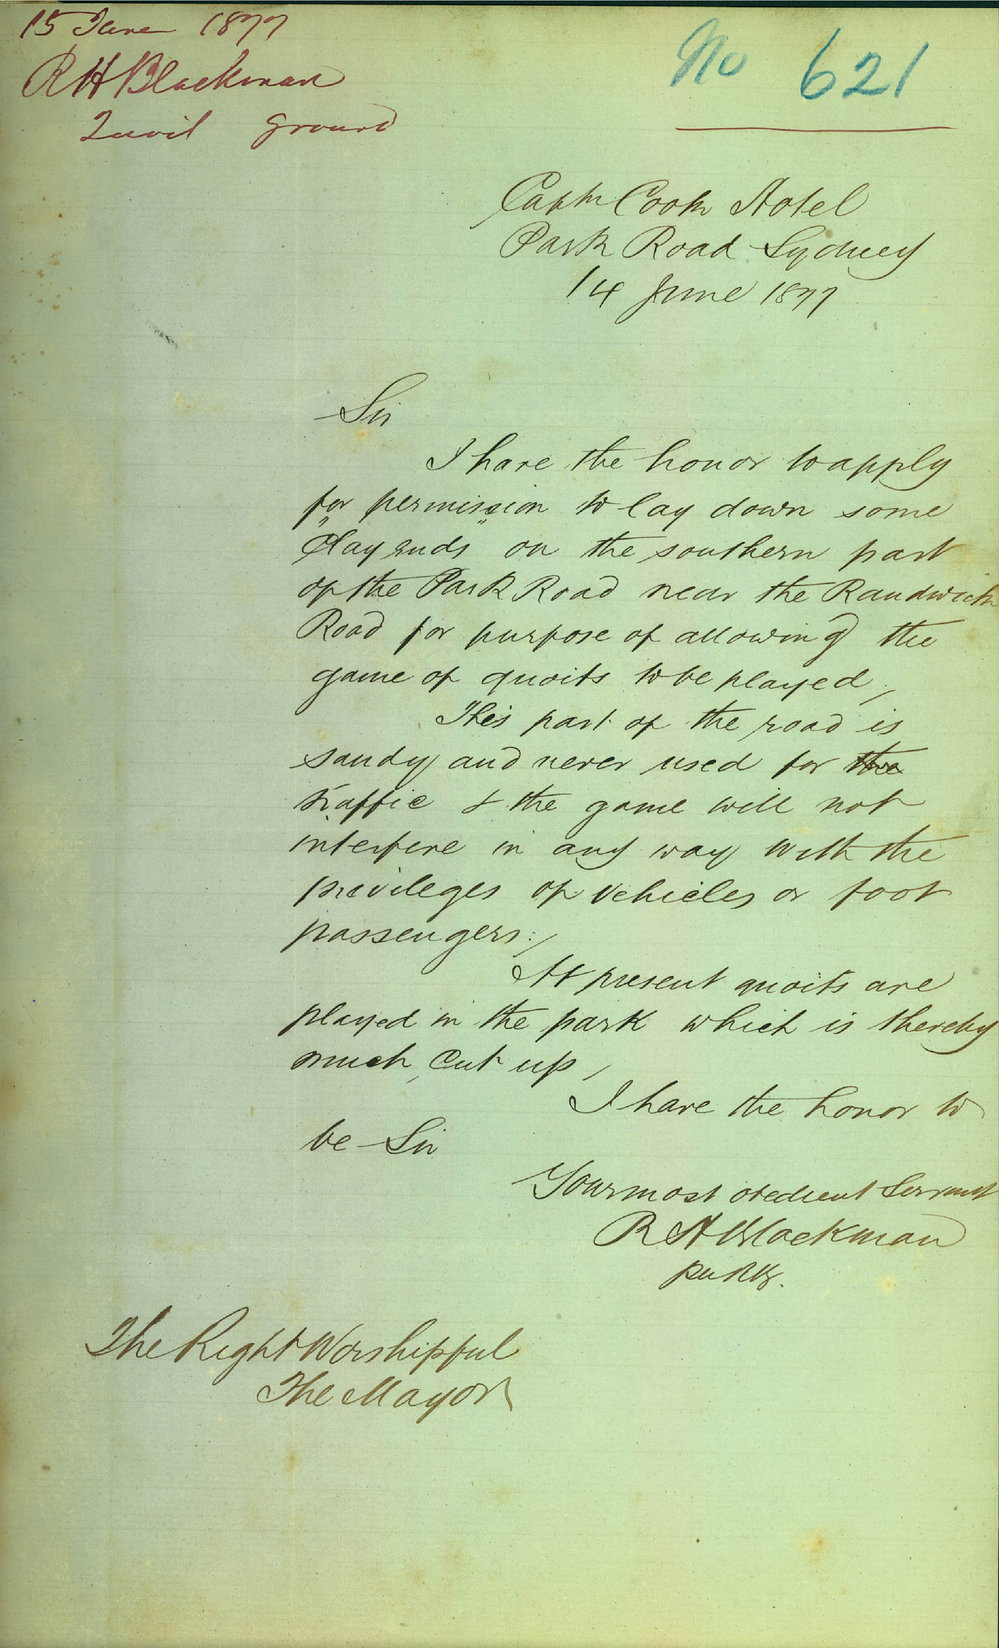 15 June 1877
R H Blackman
Quoit ground
No 621
Captn Cook Hotel
Park Road Sydney
14 June 1877
Sir
I have the honor to apply
for permission to lay down some
"Clay ends" on the southern part
of the Park Road near the Randwick
Road for purpose of allowing the
game of quoits to be played,
This part of the road is
sandy and never used for the
traffic & the game will not
interfere in any way with the
privileges of vehicles or foot
passengers:,
At present quoits are
played in the park which is thereby
much, cut up,
I have the honor to
be Sir
Your most obedient Servant
R H Blackman
per
The Right Worshipful
The Mayor